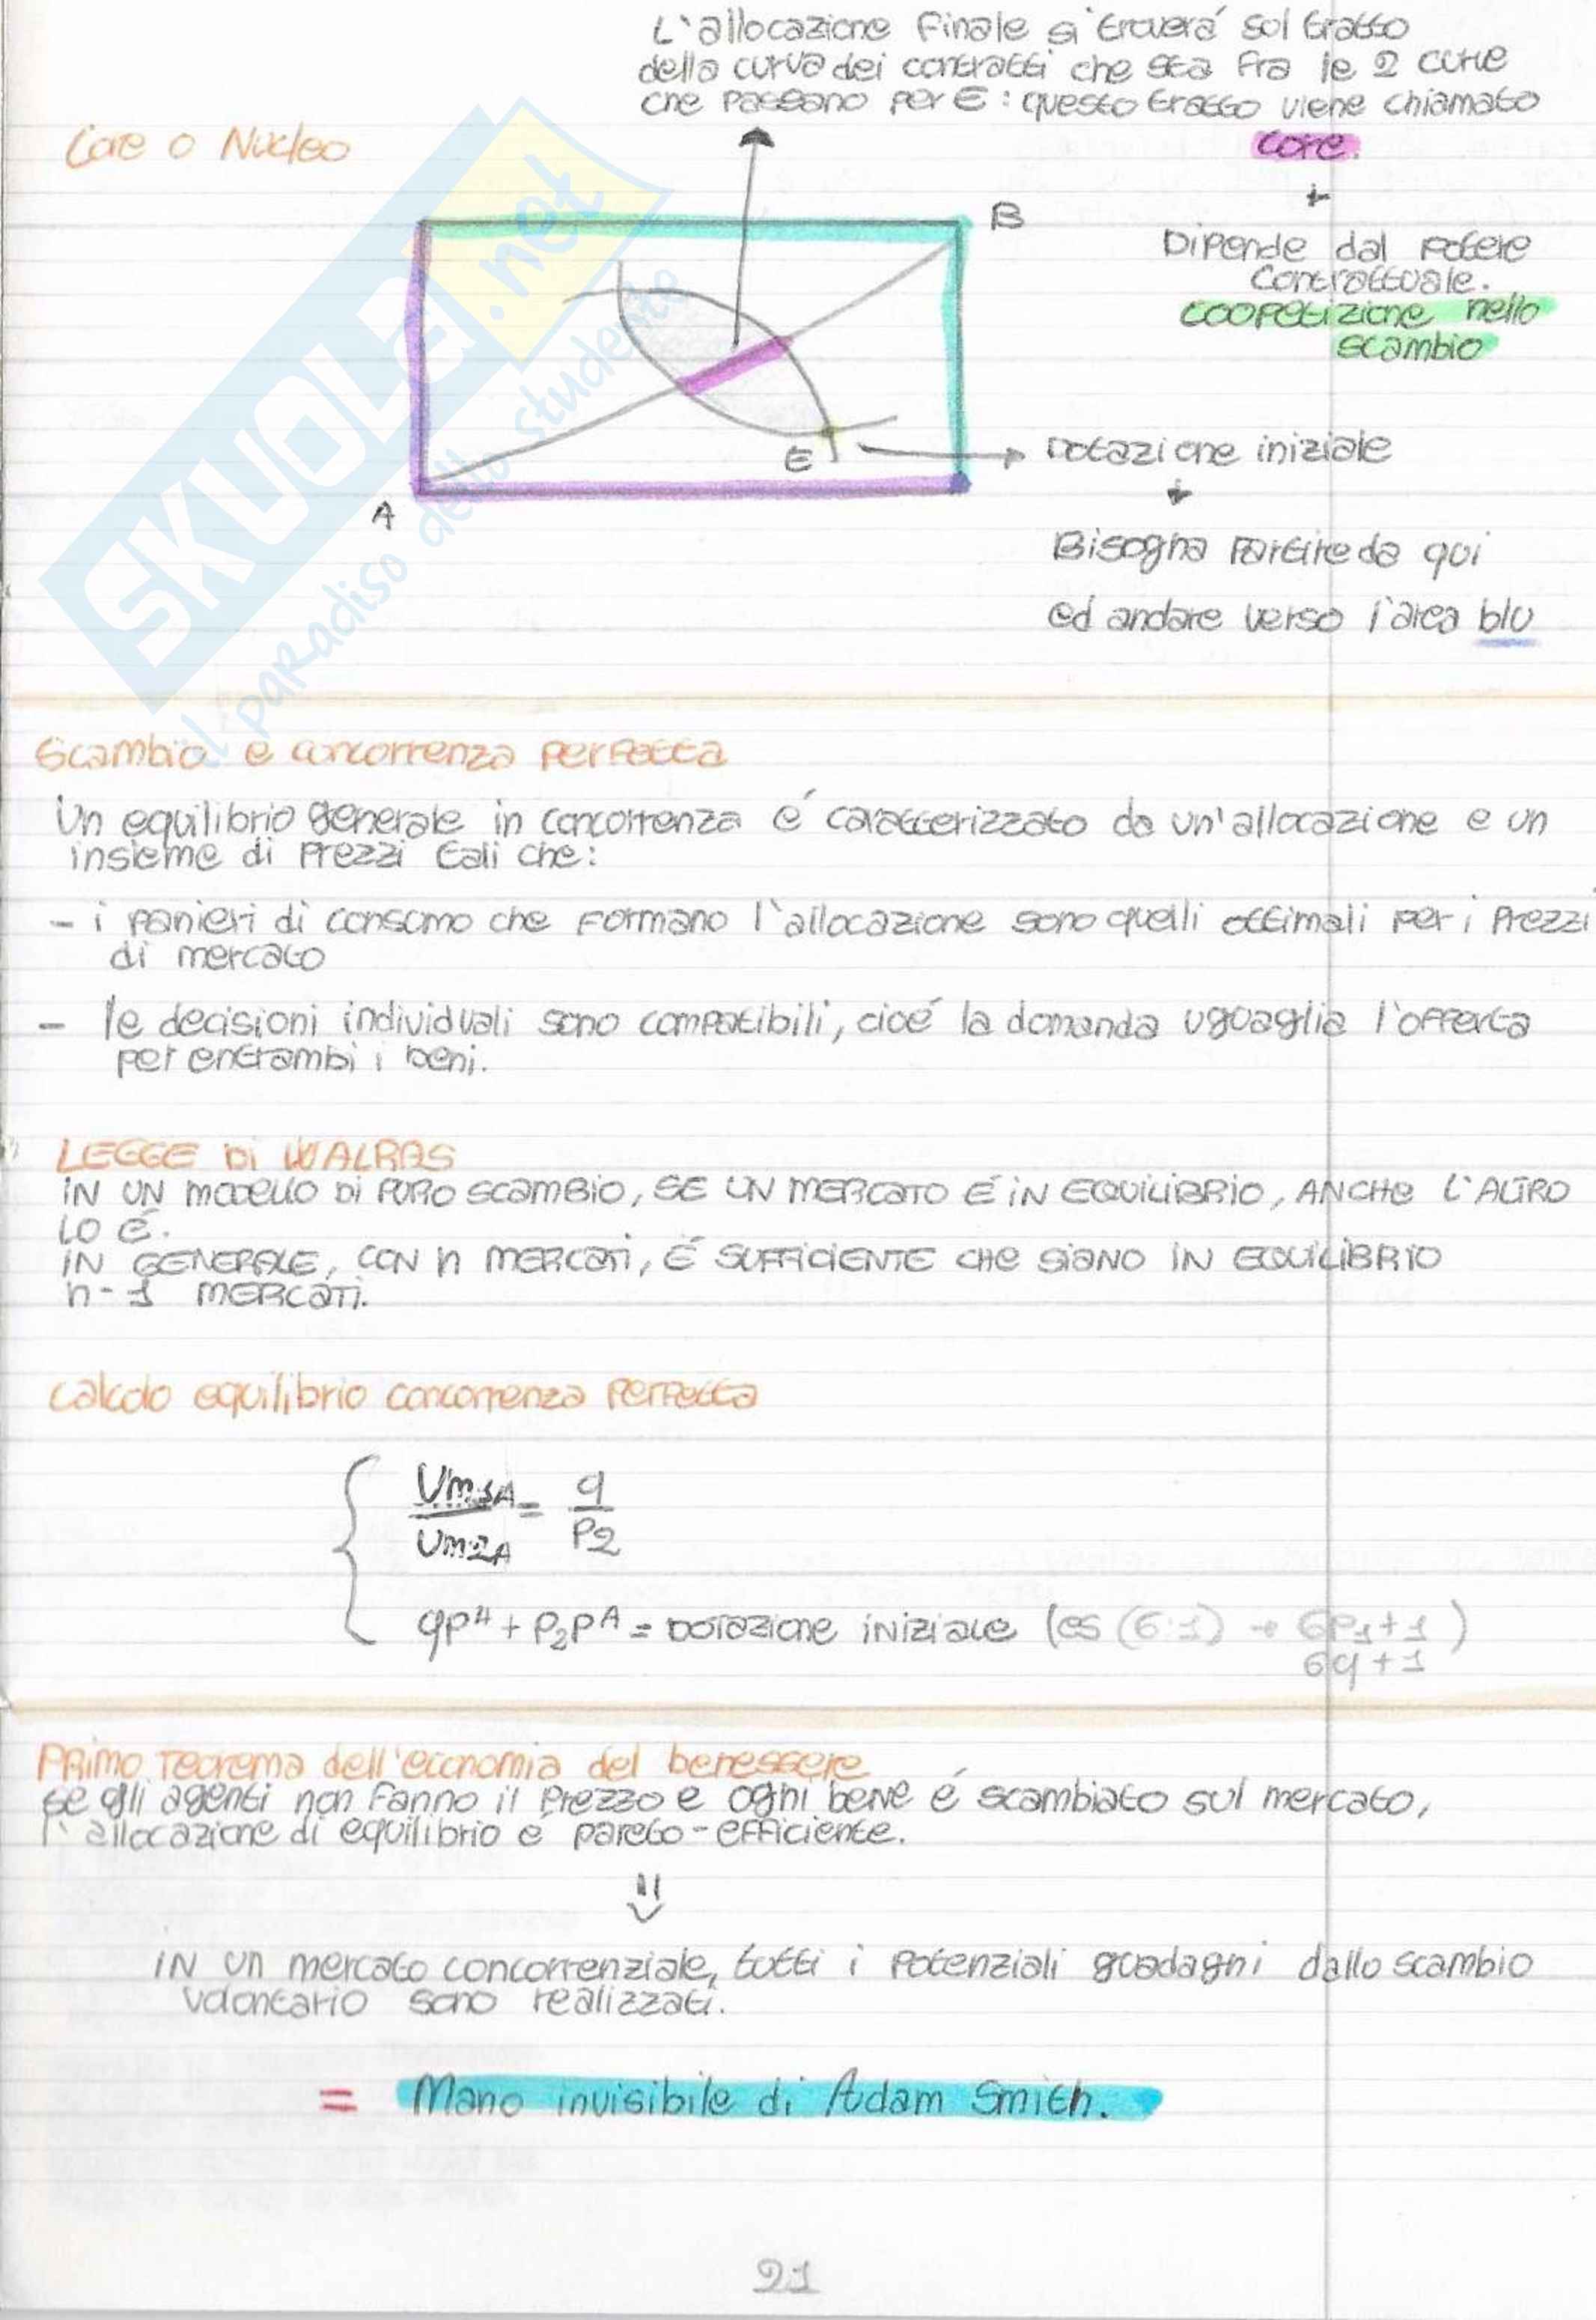 L'allocazione finale si troverá sul tratto
della curva dei contratti che sta fra le 2 curve
che passano per E: questo tratto viene chiamato
core.
Core o Nucleo
B
Dipende dal potere
contrattuale.
COOPETIZIONE nello
scambio
E
Dotazione iniziale
A
Bisogna partire da qui
ed andare verso l'area blu
SKUOLA.net
il paradiso dello studente
Scambio e concorrenza perfetta
Un equilibrio generale in concorrenza é caratterizzato da un'allocazione e un
insieme di prezzi tali che:
- i panieri di consumo che formano l'allocazione sono quelli ottimali per i prezzi
di mercato
- le decisioni individuali sono compatibili, cioé la domanda uguaglia l'offerta
per entrambi i beni.
LEGGE DI WALRAS
IN UN MODELLO DI PURO SCAMBIO, SE UN MERCATO É IN EQUILIBRIO, ANCHE L'ALTRO
LO É.
IN GENERALE, CON n MERCATI, É SUFFICIENTE CHE SIANO IN EQUILIBRIO
n-1 MERCATI.
Calcolo equilibrio concorrenza perfetta
Um1A = q
Um2A P2
+ P2 = DOTAZIONE INIZIALE (es (6:1) → 6P1+1)
6q+1
PRIMO TEOREMA dell'economia del benessere
se gli agenti non fanno il prezzo e ogni bene é scambiato sul mercato,
l'allocazione di equilibrio é pareto-efficiente.
IN un mercato concorrenziale, tutti i potenziali guadagni dallo scambio
volontario sono realizzati.
= Mano invisibile di Adam Smith.
21